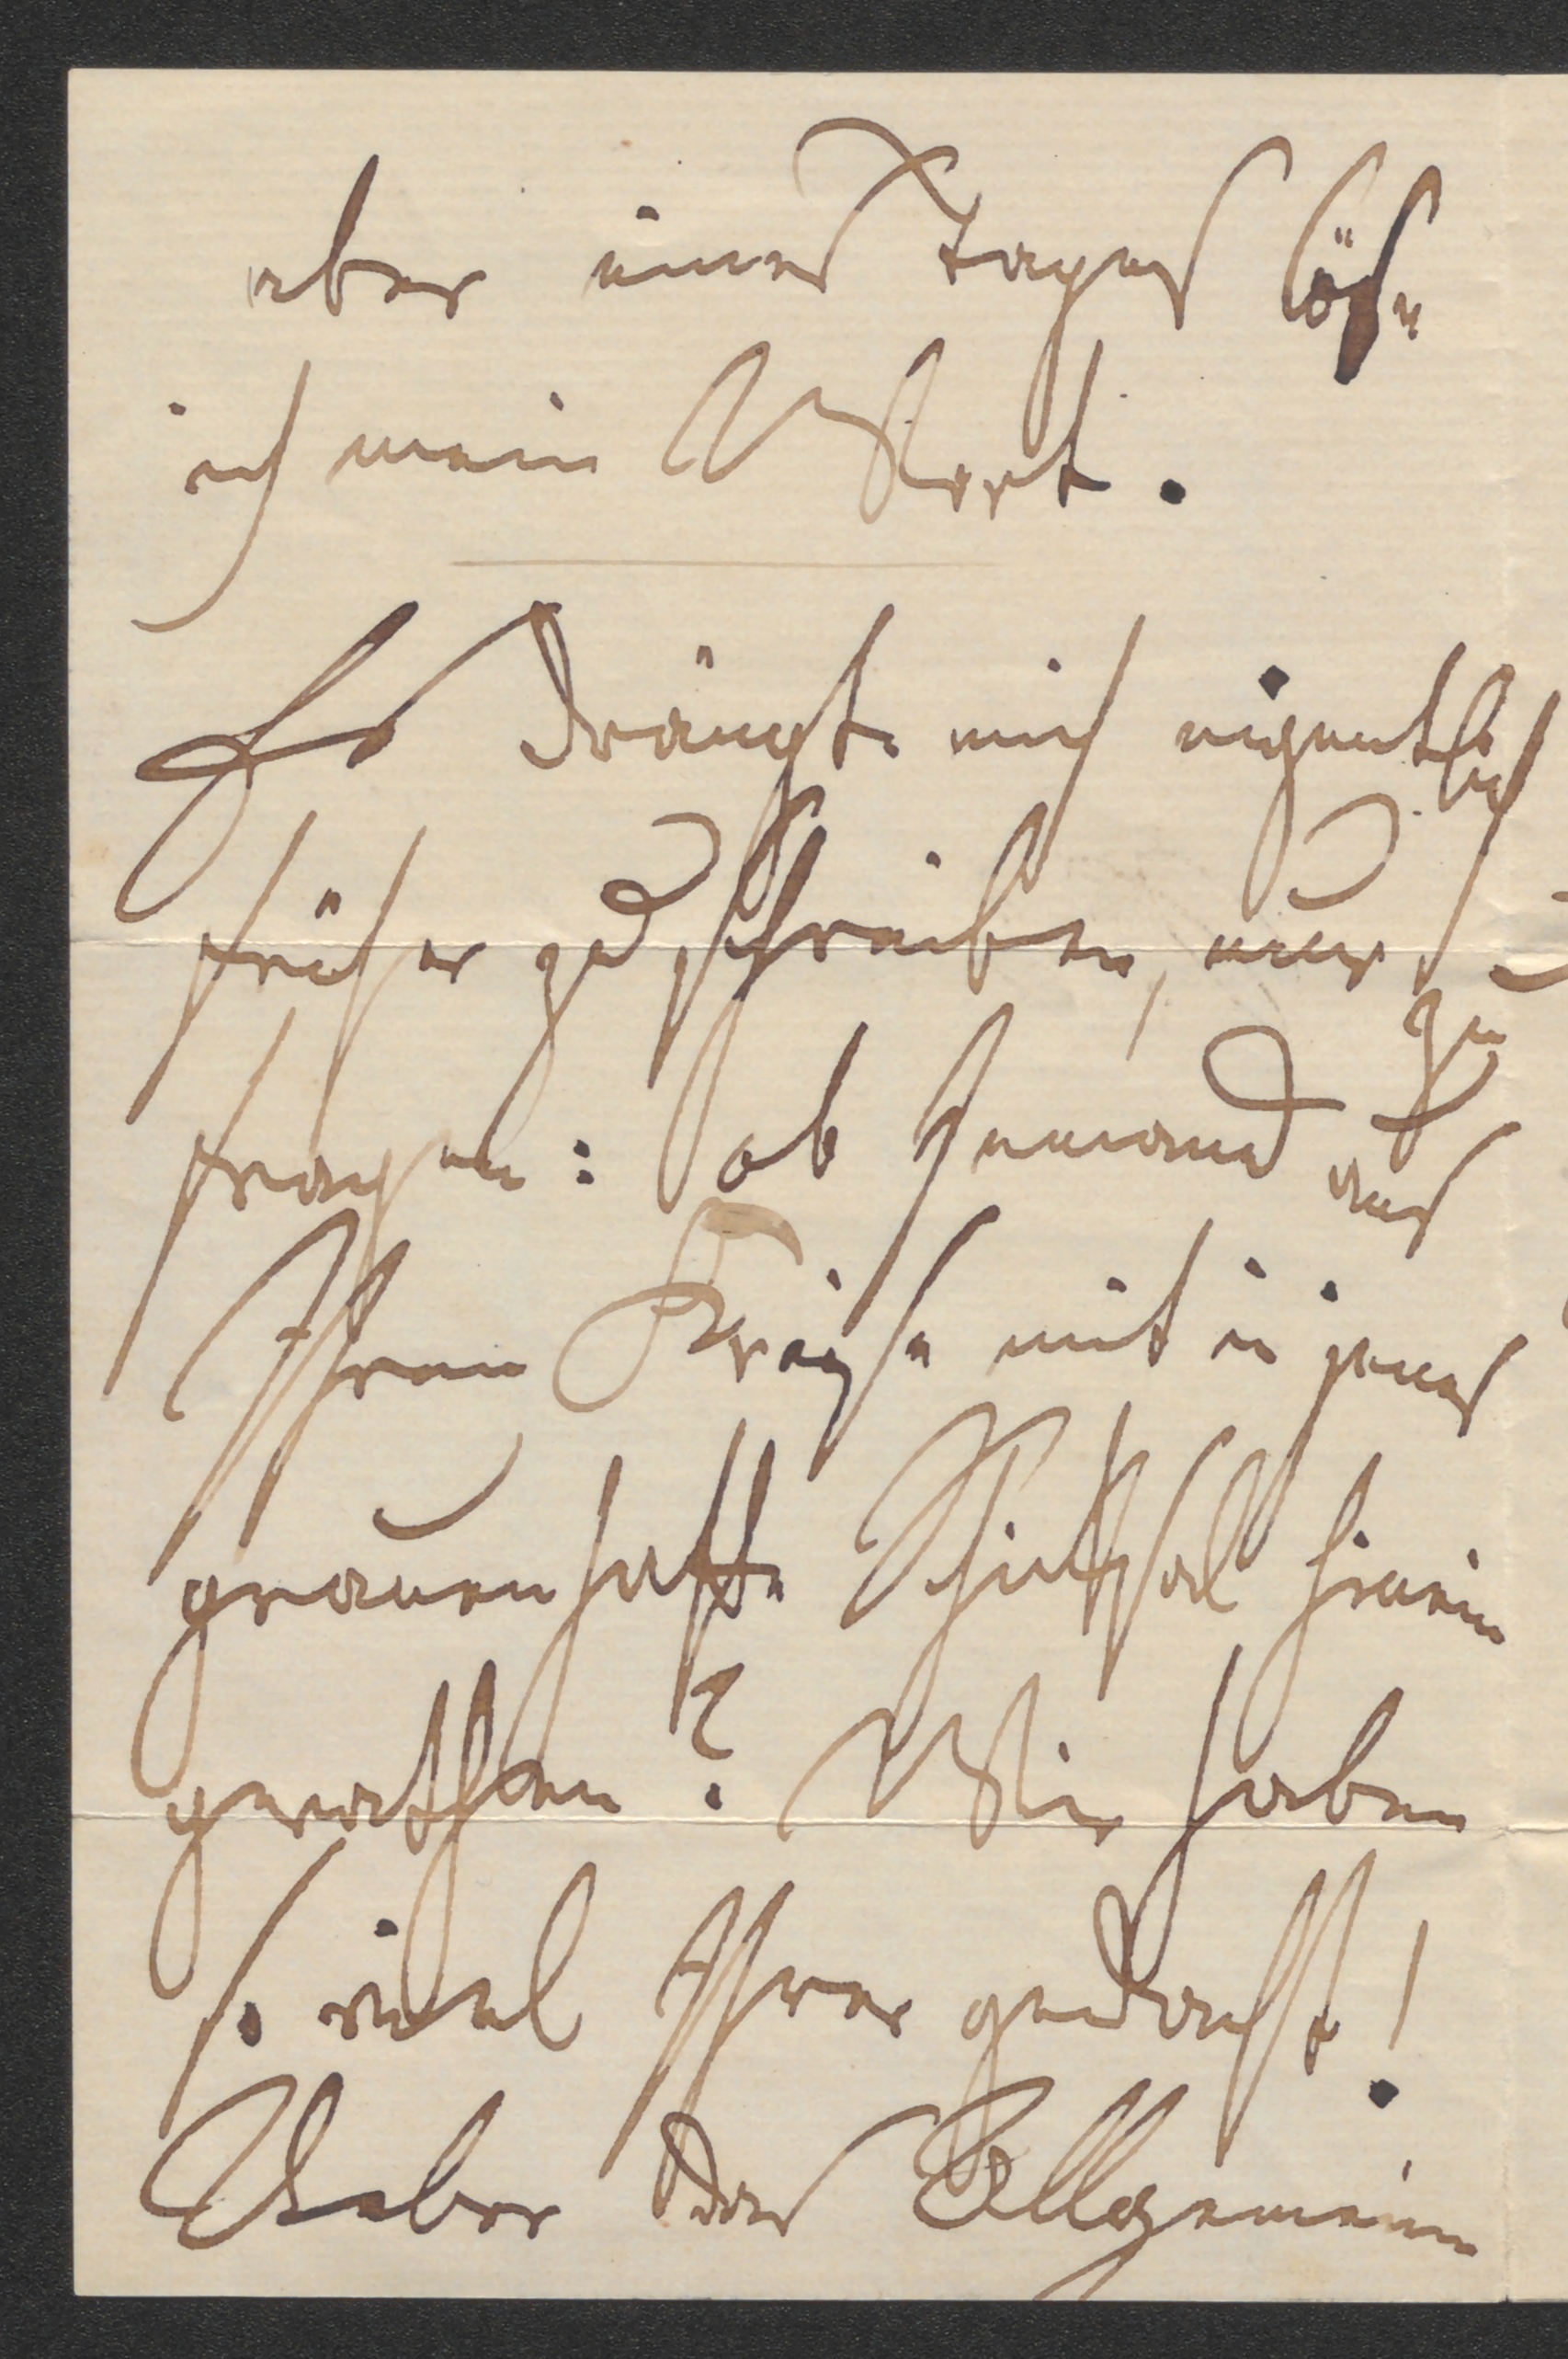 aber eines Tages löse
ich mein Wort.
Es drängte mich eigentlich
früher zu schreiben, nur zu
fragen: ob Jemand aus
Ihrem Kreise mit in jenes
grauenhafte Schicksal hinein
gerathen? Wir haben
so viel Ihrer gedacht!
Ueber das Allgemeine